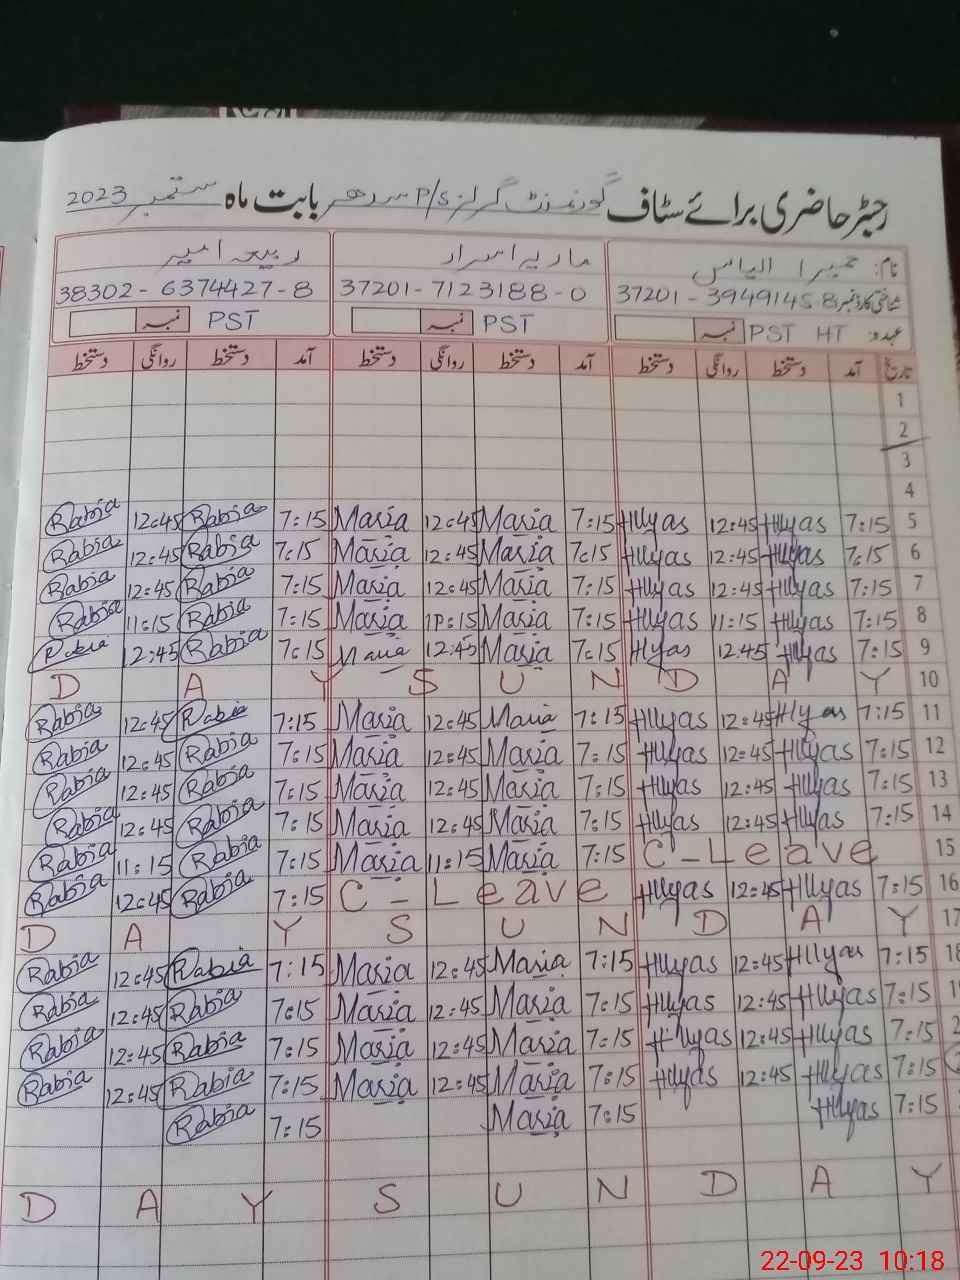 رجسٹر حاضری برائے سٹاف گورنمنٹ گرلز P/S سدھر بابت ماہ ستمبر 2023
نام: حمیرا الیاس ماریہ اسرار ربیعہ امیر
شناختی کارڈ نمبر 37201-3949145-8 37201-7123188-0 38302-6374427-8
عہدہ: PST HT نمبر PST نمبر PST نمبر
تاریخ آمد دستخط روانگی دستخط آمد دستخط روانگی دستخط آمد دستخط روانگی دستخط
1
2
3
4
5 7:15 HIlyas 12:45 HIlyas 7:15 Maria 12:45 Maria 7:15 Rabia 12:45 Rabia
6 7:15 HIlyas 12:45 HIlyas 7:15 Maria 12:45 Maria 7:15 Rabia 12:45 Rabia
7 7:15 HIlyas 12:45 HIlyas 7:15 Maria 12:45 Maria 7:15 Rabia 12:45 Rabia
8 7:15 HIlyas 11:15 HIlyas 7:15 Maria 11:15 Maria 7:15 Rabia 11:15 Rabia
9 7:15 HIlyas 12:45 HIlyas 7:15 Maria 12:45 Maria 7:15 Rabia 12:45 Rabia
10 D A Y S U N D A Y
11 7:15 HIlyas 12:45 HIlyas 7:15 Maria 12:45 Maria 7:15 Rabia 12:45 Rabia
12 7:15 HIlyas 12:45 HIlyas 7:15 Maria 12:45 Maria 7:15 Rabia 12:45 Rabia
13 7:15 HIlyas 12:45 HIlyas 7:15 Maria 12:45 Maria 7:15 Rabia 12:45 Rabia
14 7:15 HIlyas 12:45 HIlyas 7:15 Maria 12:45 Maria 7:15 Rabia 12:45 Rabia
15 C-Leave 7:15 Maria 11:15 Maria 7:15 Rabia 11:15 Rabia
16 7:15 HIlyas 12:45 HIlyas C-Leave 7:15 Rabia 12:45 Rabia
17 D A Y S U N D A Y
18 7:15 HIlyas 12:45 HIlyas 7:15 Maria 12:45 Maria 7:15 Rabia 12:45 Rabia
7:15 HIlyas 12:45 HIlyas 7:15 Maria 12:45 Maria 7:15 Rabia 12:45 Rabia
7:15 HIlyas 12:45 HIlyas 7:15 Maria 12:45 Maria 7:15 Rabia 12:45 Rabia
7:15 HIlyas 12:45 HIlyas 7:15 Maria 12:45 Maria 7:15 Rabia 12:45 Rabia
7:15 HIlyas 7:15 Maria 7:15 Rabia
D A Y S U N D A Y
22-09-23 10:18